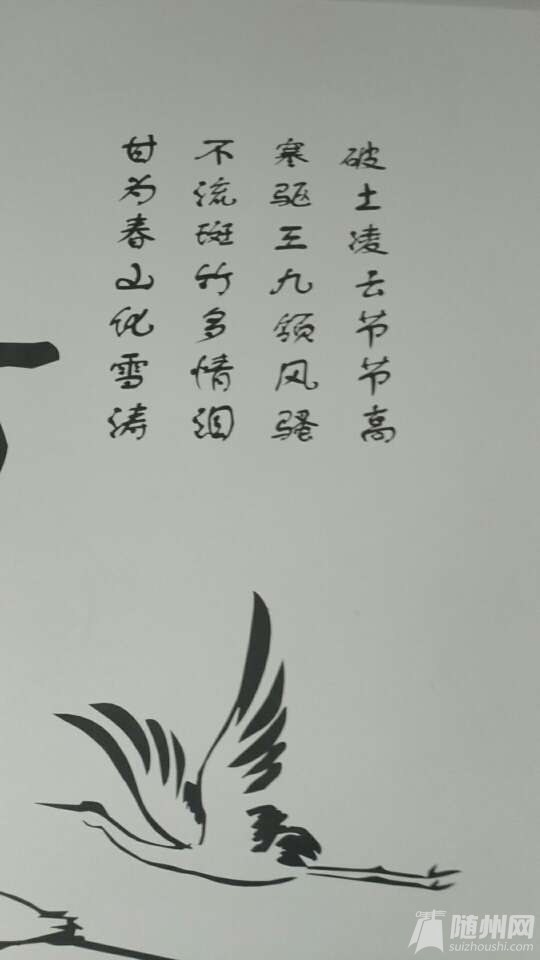 破土凌云节节高
寒驱三九领风骚
不流斑竹多情泪
甘为春山化雪涛
随州网
suizhoushi.com